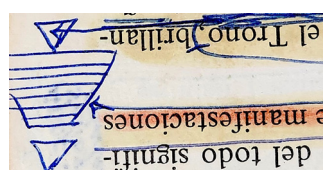 del todo signifi-
manifestaciones
el Trono, brillan-